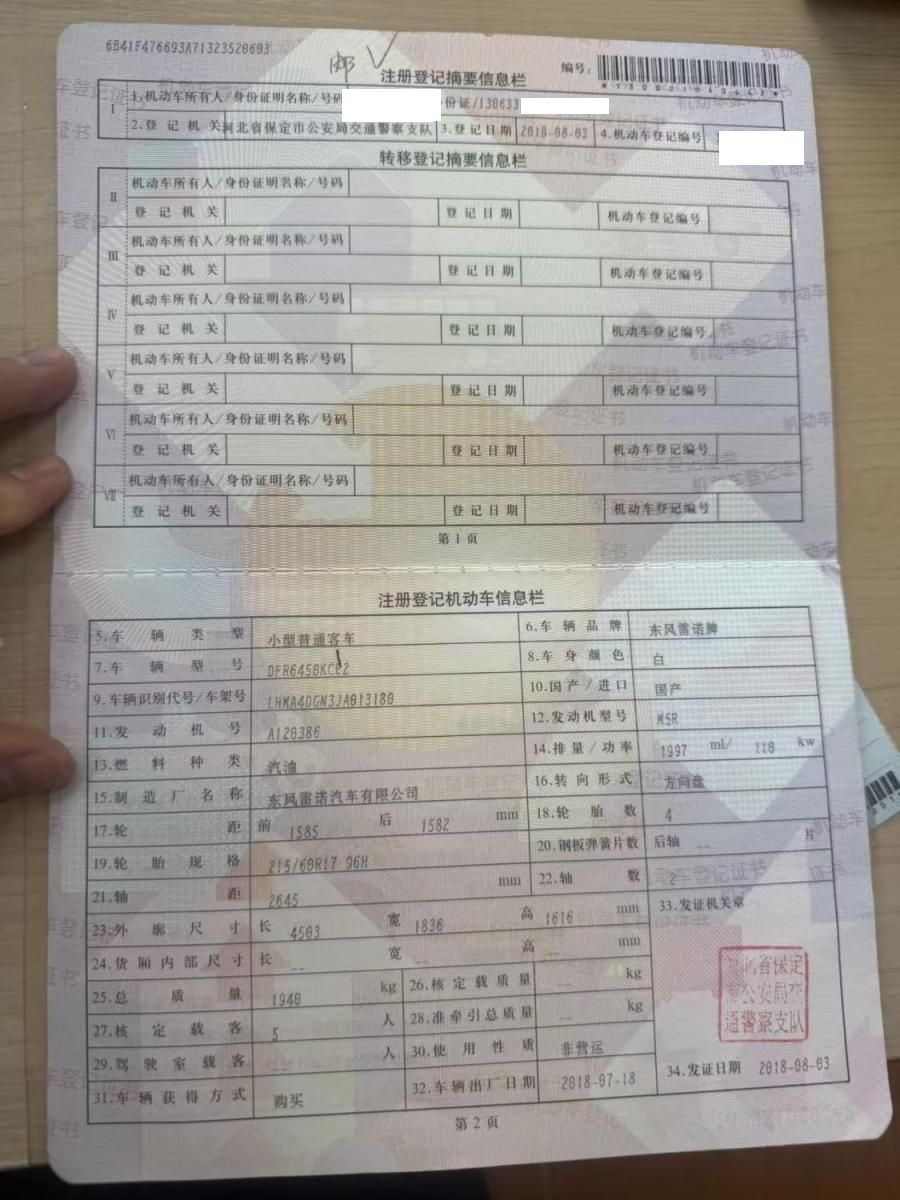 6B41F476693A71323520603
邮 V
注册登记摘要信息栏
编号:
*130021040642*
I 1.机动车所有人/身份证明名称/号码 份证/130633
2.登记机关 河北省保定市公安局交通警察支队 3.登记日期 2018-08-03 4.机动车登记编号
转移登记摘要信息栏
II 机动车所有人/身份证明名称/号码
登记机关 登记日期 机动车登记编号
III 机动车所有人/身份证明名称/号码
登记机关 登记日期 机动车登记编号
IV 机动车所有人/身份证明名称/号码
登记机关 登记日期 机动车登记编号
V 机动车所有人/身份证明名称/号码
登记机关 登记日期 机动车登记编号
VI 机动车所有人/身份证明名称/号码
登记机关 登记日期 机动车登记编号
VII 机动车所有人/身份证明名称/号码
登记机关 登记日期 机动车登记编号
第1页
注册登记机动车信息栏
5.车辆类型 小型普通客车 6.车辆品牌 东风雷诺牌
7.车辆型号 DFR6450KCE2 8.车身颜色 白
9.车辆识别代号/车架号 LHMA4DGN3JA013180 10.国产/进口 国产
11.发动机号 A120386 12.发动机型号 M5R
13.燃料种类 汽油 14.排量/功率 1997 ml/ 110 kw
15.制造厂名称 东风雷诺汽车有限公司 16.转向形式 方向盘
17.轮距 前 1585 后 1582 mm 18.轮胎数 4
19.轮胎规格 215/60R17 96H 20.钢板弹簧片数 后轴 -- 片
21.轴距 2645 mm 22.轴数 2
23.外廓尺寸 长 4503 宽 1836 高 1616 mm 33.发证机关章
24.货厢内部尺寸 长 -- 宽 -- 高 -- mm
25.总质量 1940 kg 26.核定载质量 -- kg
河北省保定市公安局交通警察支队
27.核定载客 5 人 28.准牵引总质量 -- kg
29.驾驶室载客 -- 人 30.使用性质 非营运
31.车辆获得方式 购买 32.车辆出厂日期 2018-07-18 34.发证日期 2018-08-03
第2页